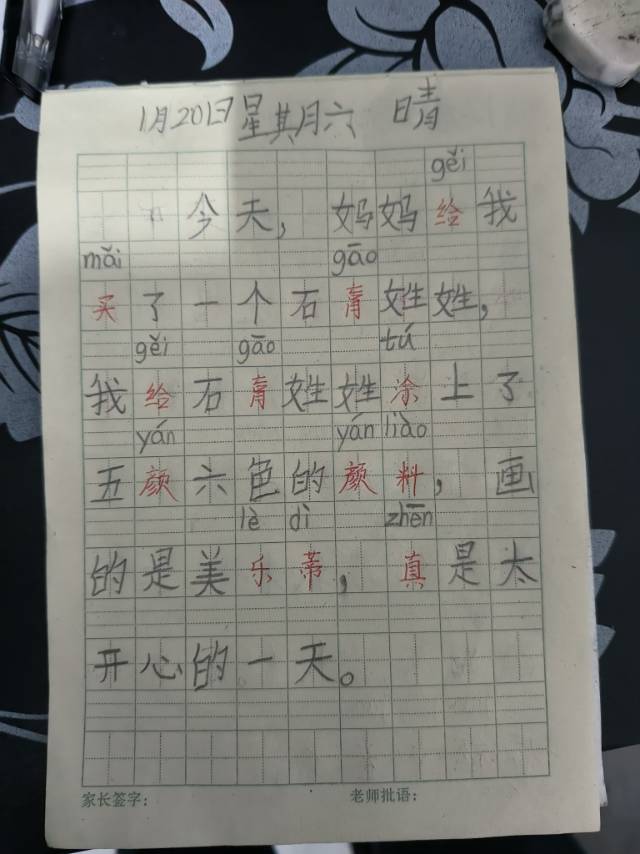 1月20日星期六 晴
gěi
今天，妈妈给我
mǎi gāo
买了一个石膏姓姓，
gěi gāo tú
我给石膏姓姓涂上了
yán yán liào
五颜六色的颜料，画
lè dì zhēn
的是美乐蒂，真是太
开心的一天。
家长签字： 老师批语：